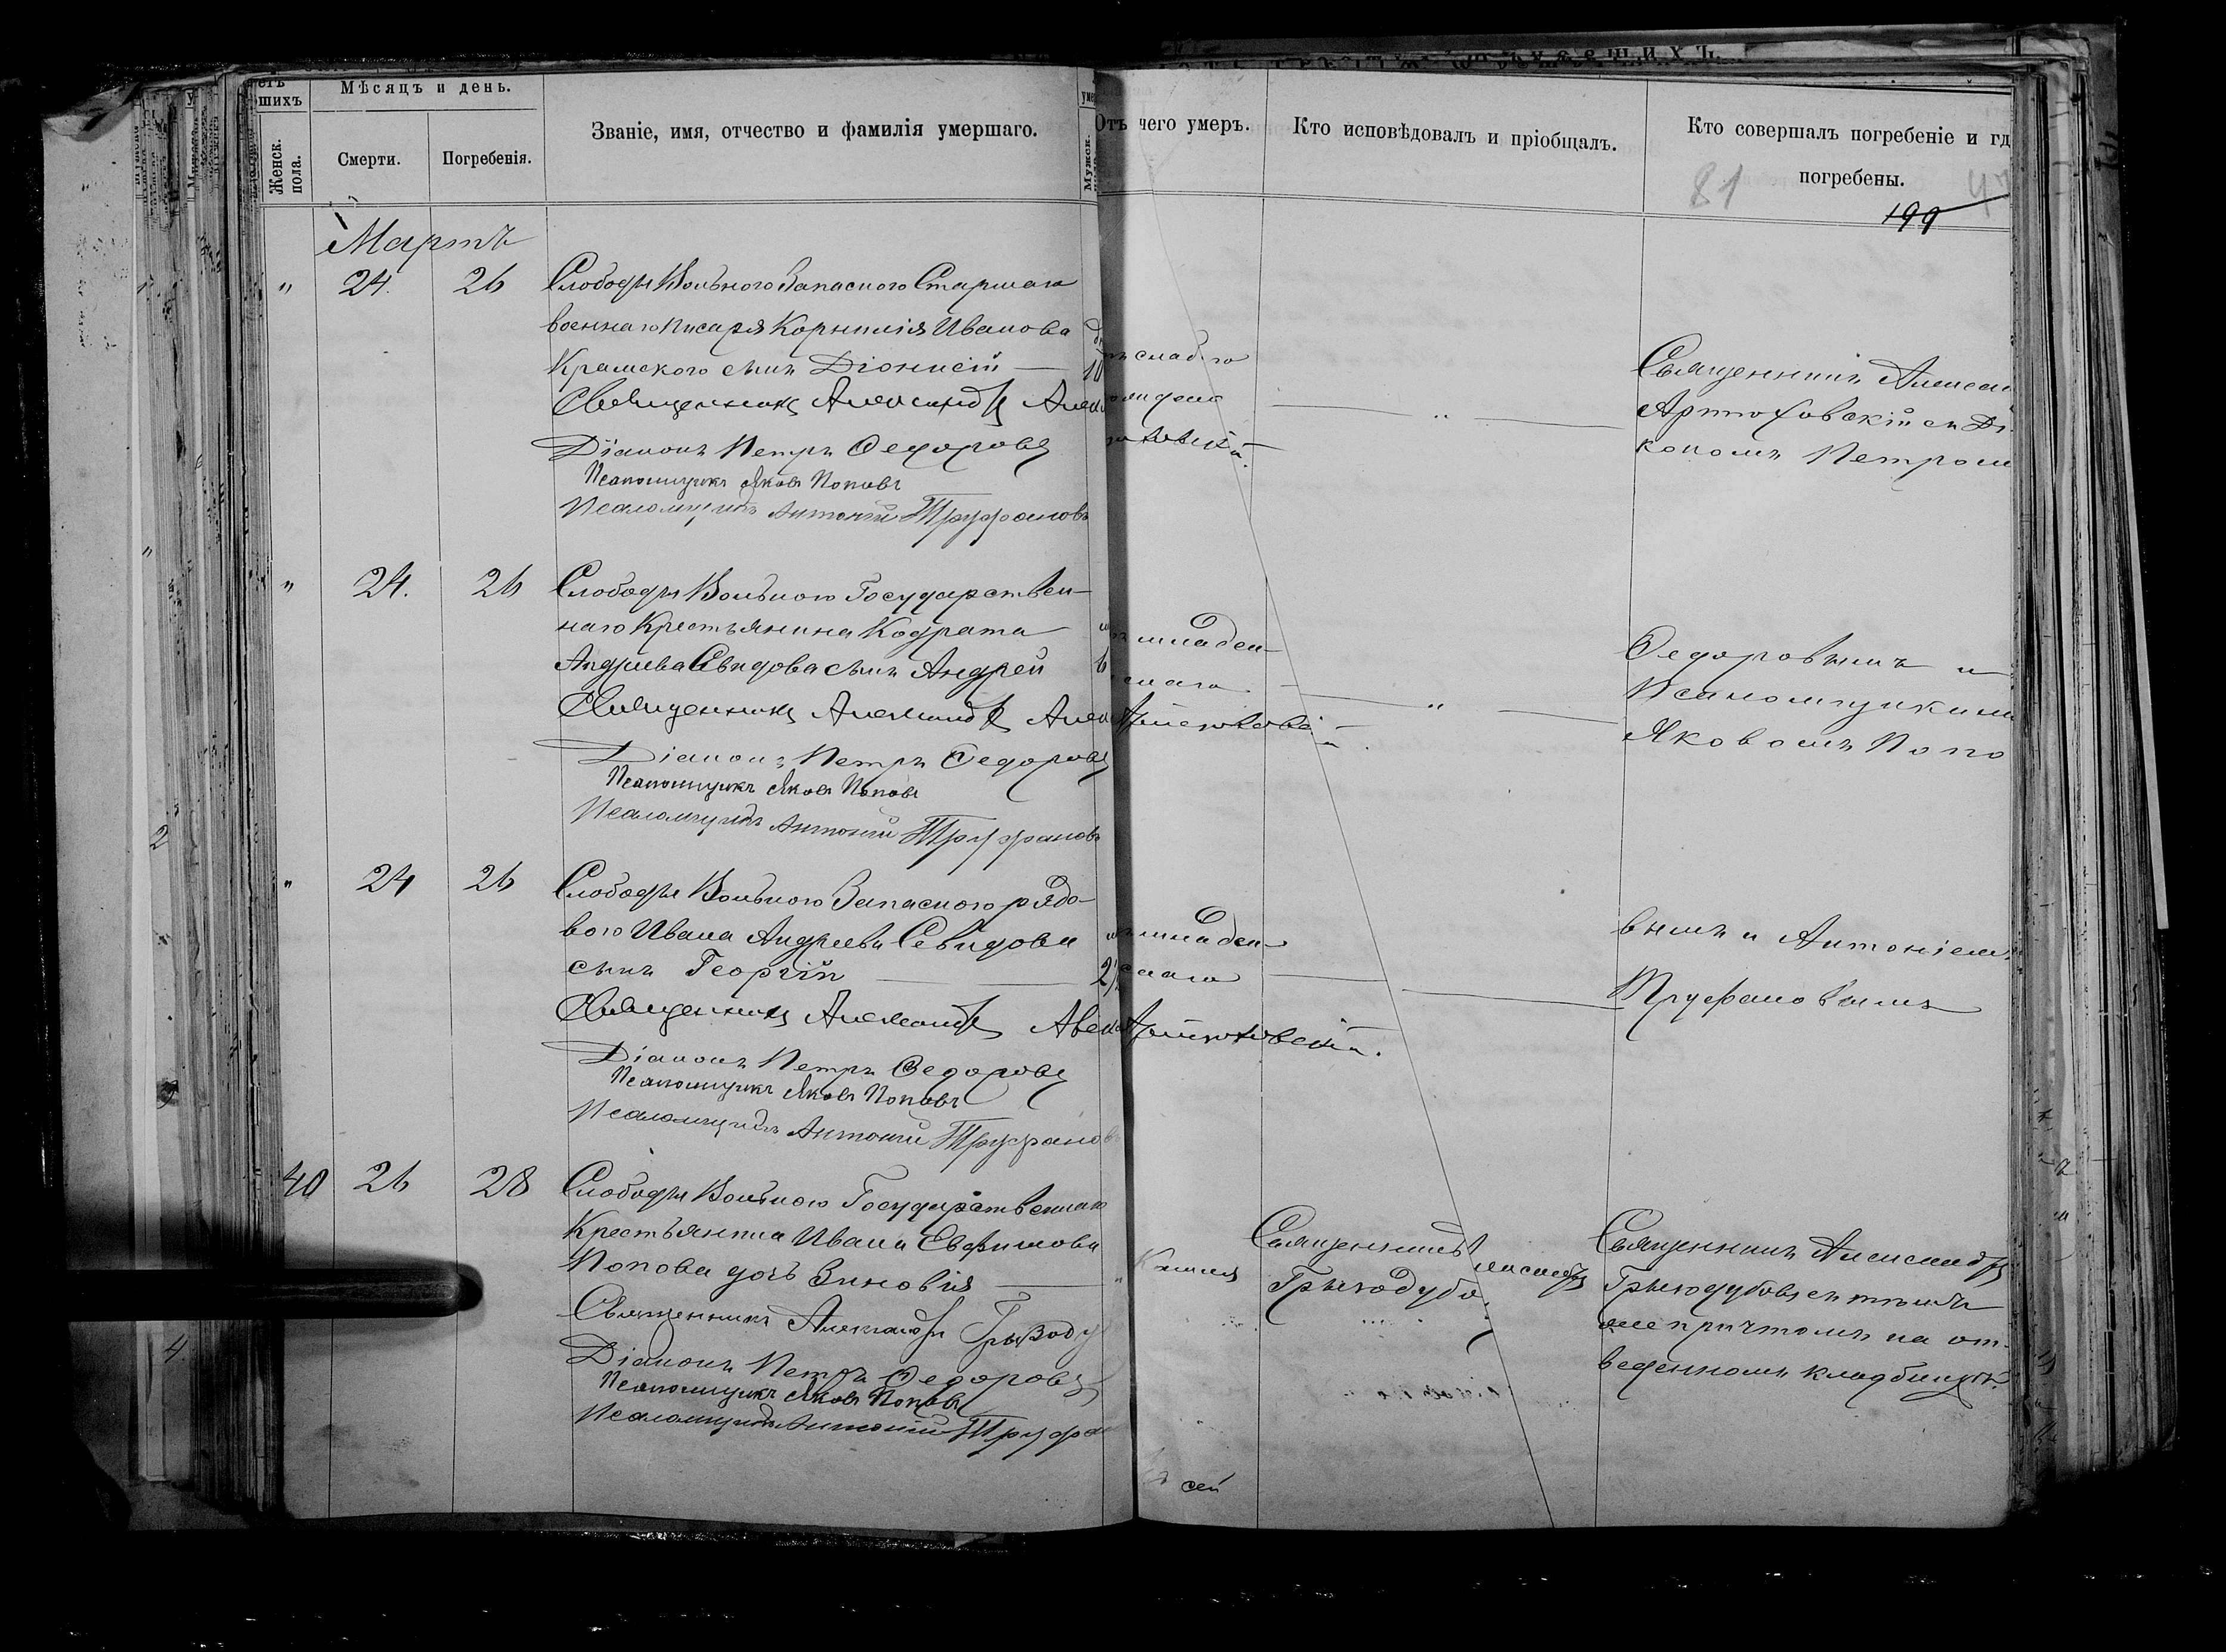 Мѣсяцъ и день.
шихъ
Женск.
пола.
Смерти.
Погребенія.
Званіе, имя, отчество и фамилія умершаго.
Мужск.
Отъ чего умеръ.
Кто исповѣдовалъ и пріобщалъ.
Кто совершалъ погребеніе и гд
погребены.
81
199
Мартъ
" 24. 26 Слободы Вольного Запасного Старшаго
военнаго писаря Корнилія Иванова
Крамского сынъ Діонисій
10
Священникъ Александръ
Діаконъ Петръ Ѳедоровъ
Псаломщикъ Яковъ Поповъ
Псаломщикъ Антоній Труфановъ
слабаго
Священникъ Алексан
Артюховскій съ Ді
кономъ Петромъ
" 24. 26 Слободы Вольного Государствен-
наго Крестьянина Кодрата
Андреева Сѣвидова сынъ Андрей
6
младен-
Священникъ Александръ
Діаконъ Петръ Ѳедоровъ
Псаломщикъ Яковъ Поповъ
Псаломщикъ Антоній Труфановъ
Ѳедоровымъ и
Псаломщиками
Яковомъ Попо
" 24 26 Слободы Вольного Запасного рядо-
вого Ивана Андреева Севидова
сынъ Георгій
младен-
Священникъ Александръ
Діаконъ Петръ Ѳедоровъ
Псаломщикъ Яковъ Поповъ
Псаломщикъ Антоній Труфановъ
вымъ и Антоніем
Труфановымъ
40 26 28 Слободы Вольного Государственнаго
Крестьянина Ивана Евфимова
Попова дочь Зиновія
Священникъ Александръ
Діаконъ Петръ Ѳедоровъ
Псаломщикъ Яковъ Поповъ
Псаломщикъ Антоній Труфа
Кашля
Священникъ
Священникъ Александръ
Грызодубовъ съ тѣмъ
же причтомъ на от-
веденномъ кладбищѣ.
сей